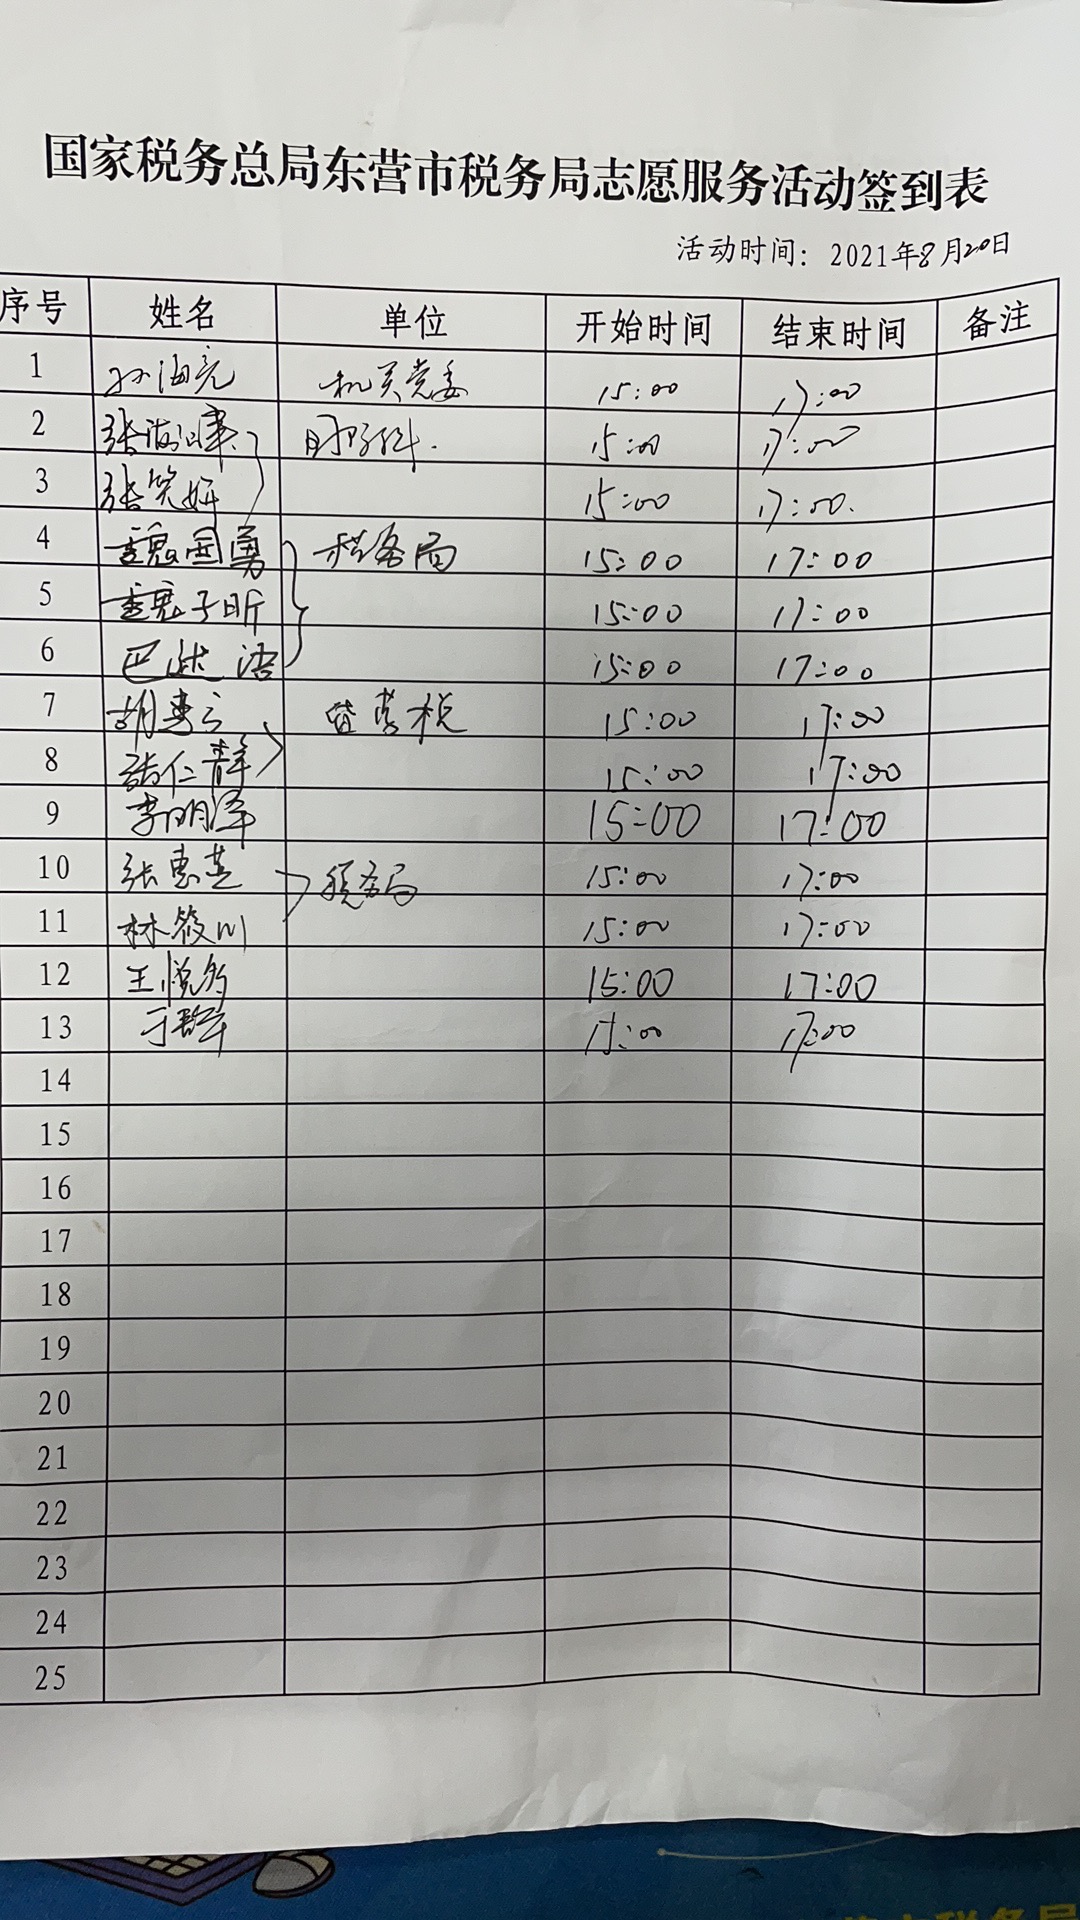 国家税务总局东营市税务局志愿服务活动签到表
活动时间：2021年8月20日
序号 姓名 单位 开始时间 结束时间 备注
1 孙海亮 机关党委 15:00 17:00
2 张 15:00 17:00
3 张笑妍 15:00 17:00.
4 魏国勇 税务局 15:00 17:00
5 魏子昕 15:00 17:00
6 巴 语 15:00 17:00
7 胡 税 15:00 17:00
8 张仁青 15:00 17:00
9 李明泽 15:00 17:00
10 张惠芝 税务局 15:00 17:00
11 林筱川 15:00 17:00
12 王悦 15:00 17:00
13 于 15:00 17:00
14
15
16
17
18
19
20
21
22
23
24
25